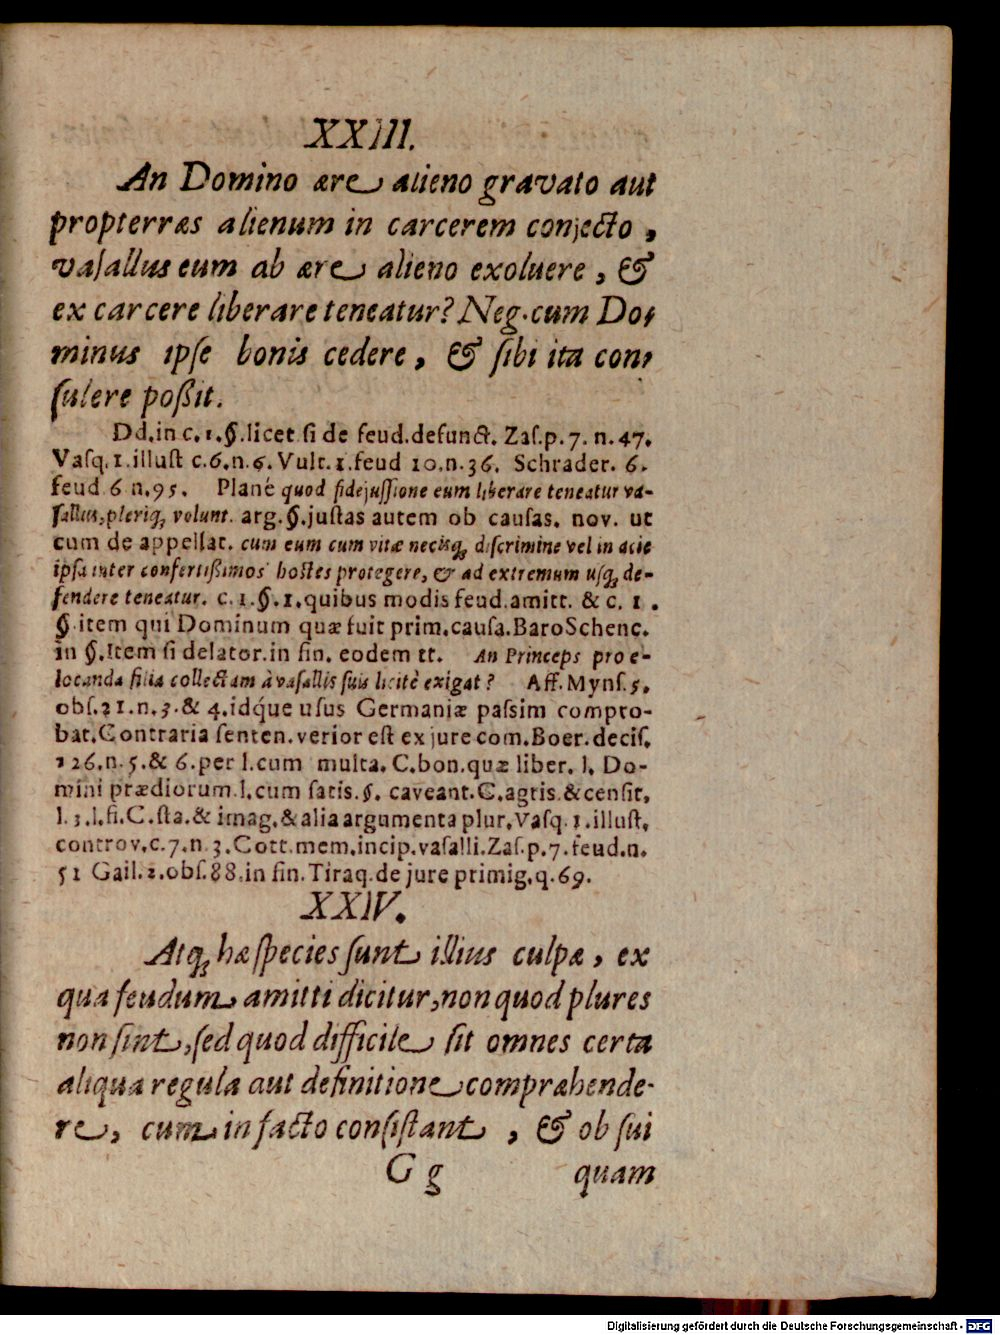 XXIII.
An Domino ære alieno gravato aut
propterræs alienum in carcerem conjecto,
vasallus eum ab ære alieno exoluere, &
ex carcere liberare teneatur? Neg. cum Do-
minus ipse bonis cedere, & sibi ita con-
sulere poßit.
Dd. in c. 1. §. licet si de feud. defunct. Zas. p. 7. n. 47.
Vasq. 1. illust c. 6. n. 6. Vult. 1. feud 10. n. 36. Schrader. 6.
feud 6 n. 95. Planè quod fidejussione eum liberare teneatur va-
sallus, pleriq; volunt. arg. §. justas autem ob causas. nov. ut
cum de appellat. cum eum cum vitæ necisq; discrimine vel in acie
ipsa inter confertißimos hostes protegere, & ad extremum usq; de-
fendere teneatur. c. 1. §. 1. quibus modis feud. amitt. & c. 1.
§. item qui Dominum quæ fuit prim. causa. Baro Schenc.
in §. Item si delator. in fin. eodem tt. An Princeps pro e-
locanda filia collectam à vasallis suis licitè exigat? Aff. Myns. 5.
obs. 21. n. 3. & 4. idq́ue usus Germaniæ passim compro-
bat. Contraria senten. verior est ex jure com. Boer. decis.
126. n. 5. & 6. per l. cum multa. C. bon. quæ liber. l. Do-
mini prædiorum. l. cum satis. §. caveant. C. agris. & censit.
l. 3. l. fi. C. sta. & imag. & alia argumenta plur. Vasq. 1. illust.
controv. c. 7. n. 3. Gott. mem. in cip. vasalli. Zas. p. 7. feud. n.
51 Gail. 2. obs. 88. in fin. Tiraq. de jure primig. q. 69.
XXIV.
Atq; hæ species sunt illius culpæ, ex
qua feudum amitti dicitur, non quod plures
non sint, sed quod difficile sit omnes certa
aliqua regula aut definitione compræhende-
re, cum in facto consistant, & ob sui
G g quam
Digitalisierung gefördert durch die Deutsche Forschungsgemeinschaft - DFG